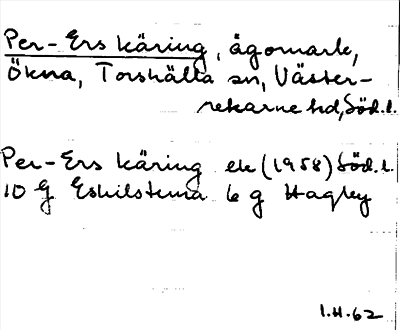 Per-Ers käring, ägomark,
Ökna, Torshälla sn, Väster-
rekarne hd, Söd.l.
Per-Ers käring ek (1958) Söd.l.
10 G Eskilstuna 6 g Hagby
1.H.62